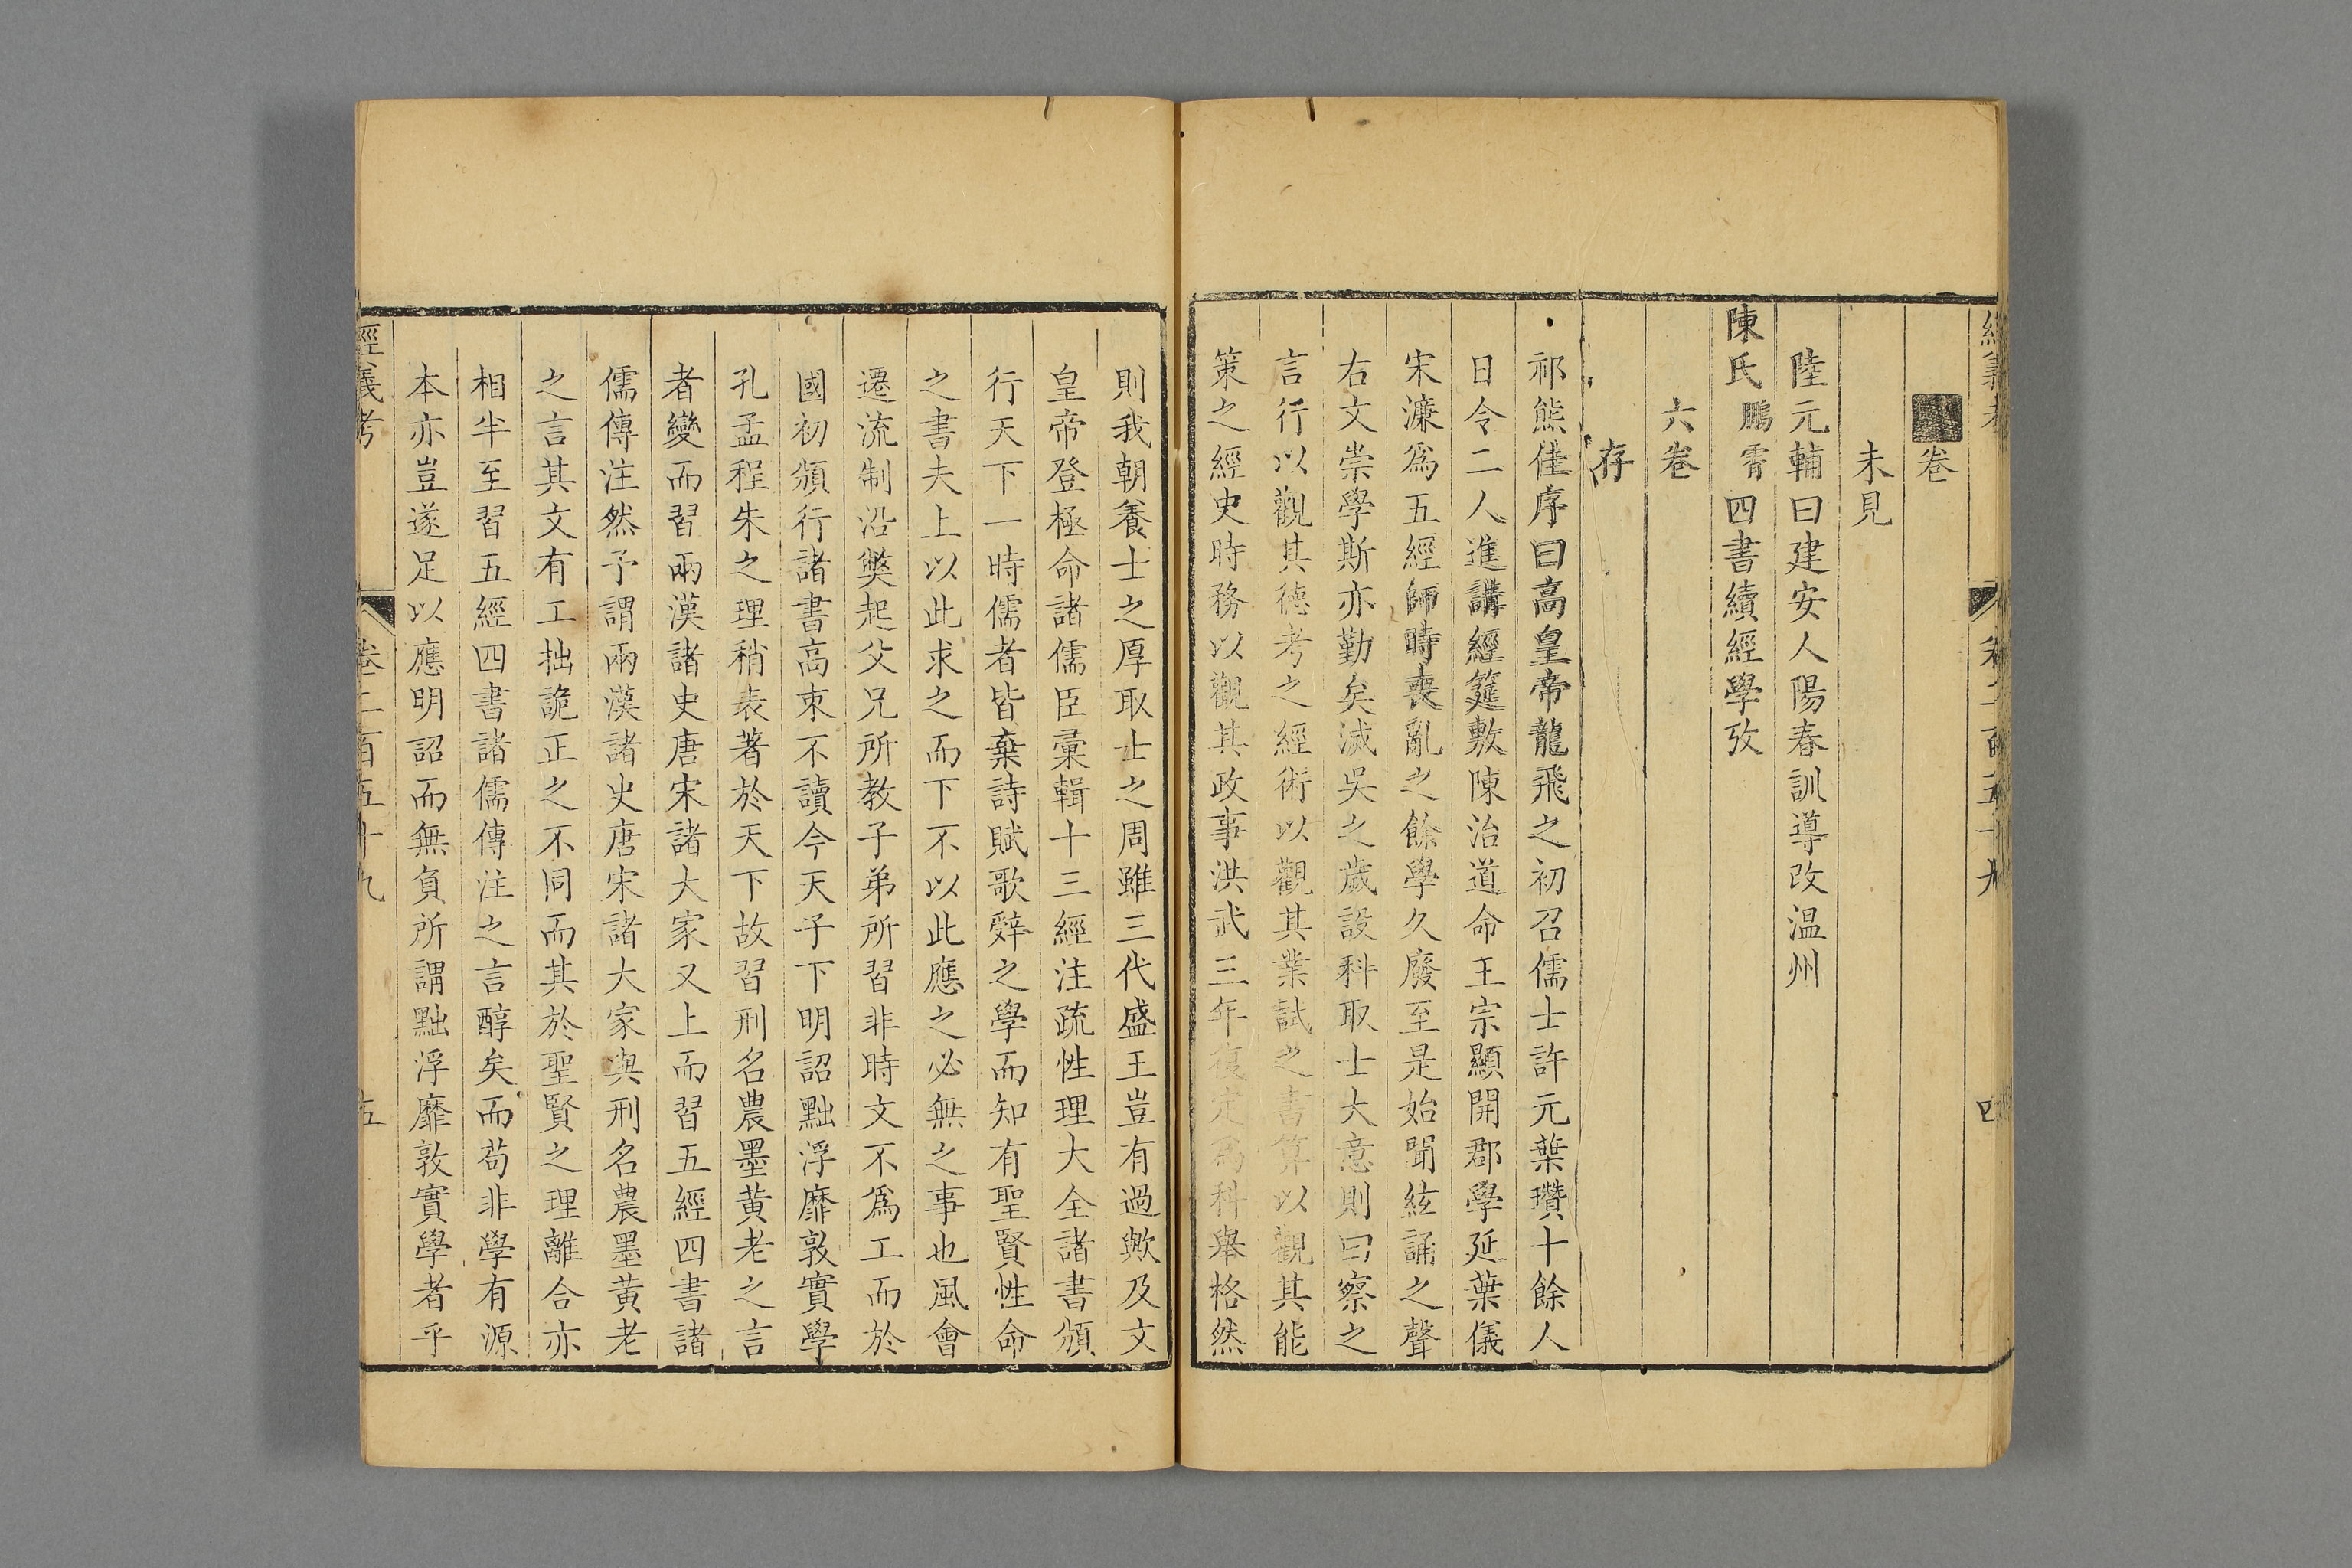 經義考 卷二百五十九 四
卷
未見
陸元輔曰建安人陽春訓導改温州
陳氏鵬霄四書續經學攷
六卷
存
祁熊佳序曰高皇帝龍飛之初召儒士許元葉瓚十餘人
日令二人進講經筵敷陳治道命王宗顯開郡學延葉儀
宋濂爲五經師時喪亂之餘學久廢至是始聞絃誦之聲
右文崇學斯亦勤矣滅吳之歲設科取士大意則曰察之
言行以觀其德考之經術以觀其業試之書算以觀其能
策之經史時務以觀其政事洪武三年復定爲科舉格然
則我朝養士之厚取士之周雖三代盛王豈有過歟及文
皇帝登極命諸儒臣彙輯十三經注疏性理大全諸書頒
行天下一時儒者皆棄詩賦歌辭之學而知有聖賢性命
之書夫上以此求之而下不以此應之必無之事也風會
遷流制沿獘起父兄所教子弟所習非時文不爲工而於
國初頒行諸書高朿不讀今天子下明詔黜浮靡敦實學
孔孟程朱之理稍表著於天下故習刑名農墨黃老之言
者變而習兩漢諸史唐宋諸大家又上而習五經四書諸
儒傳注然予謂兩漢諸史唐宋諸大家與刑名農墨黃老
之言其文有工拙詭正之不同而其於聖賢之理離合亦
相半至習五經四書諸儒傳注之言醇矣而苟非學有源
本亦豈遂足以應明詔而無負所謂黜浮靡敦實學者乎
經義考 卷二百五十九 五